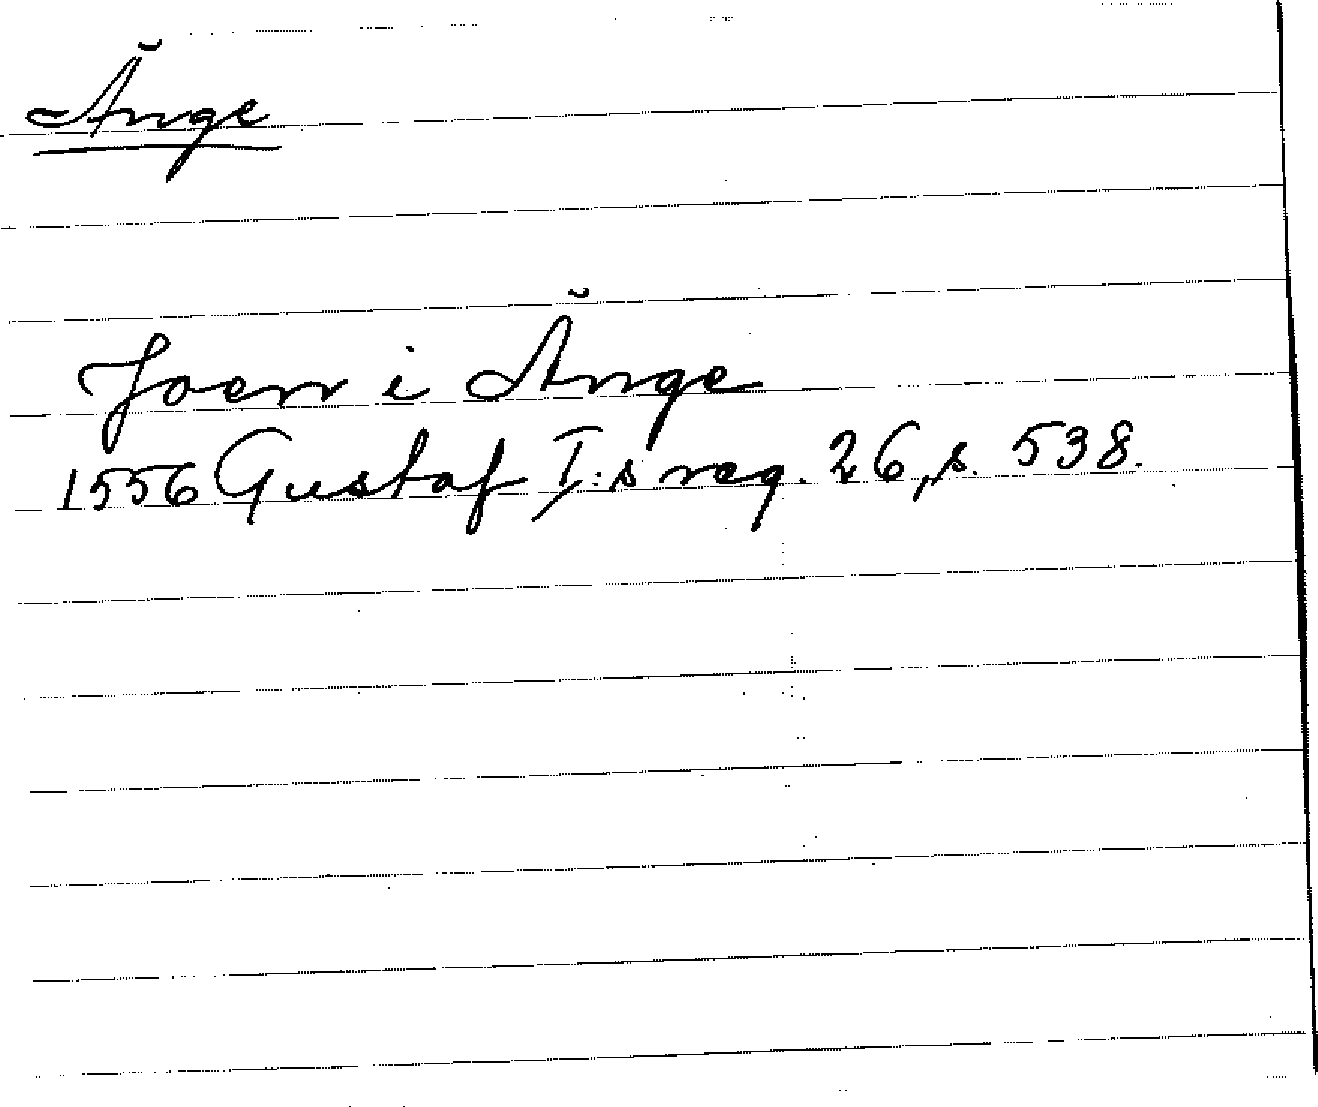 Änge
Joen i Änge
1556 Gustaf I:s reg. 26, s. 538.